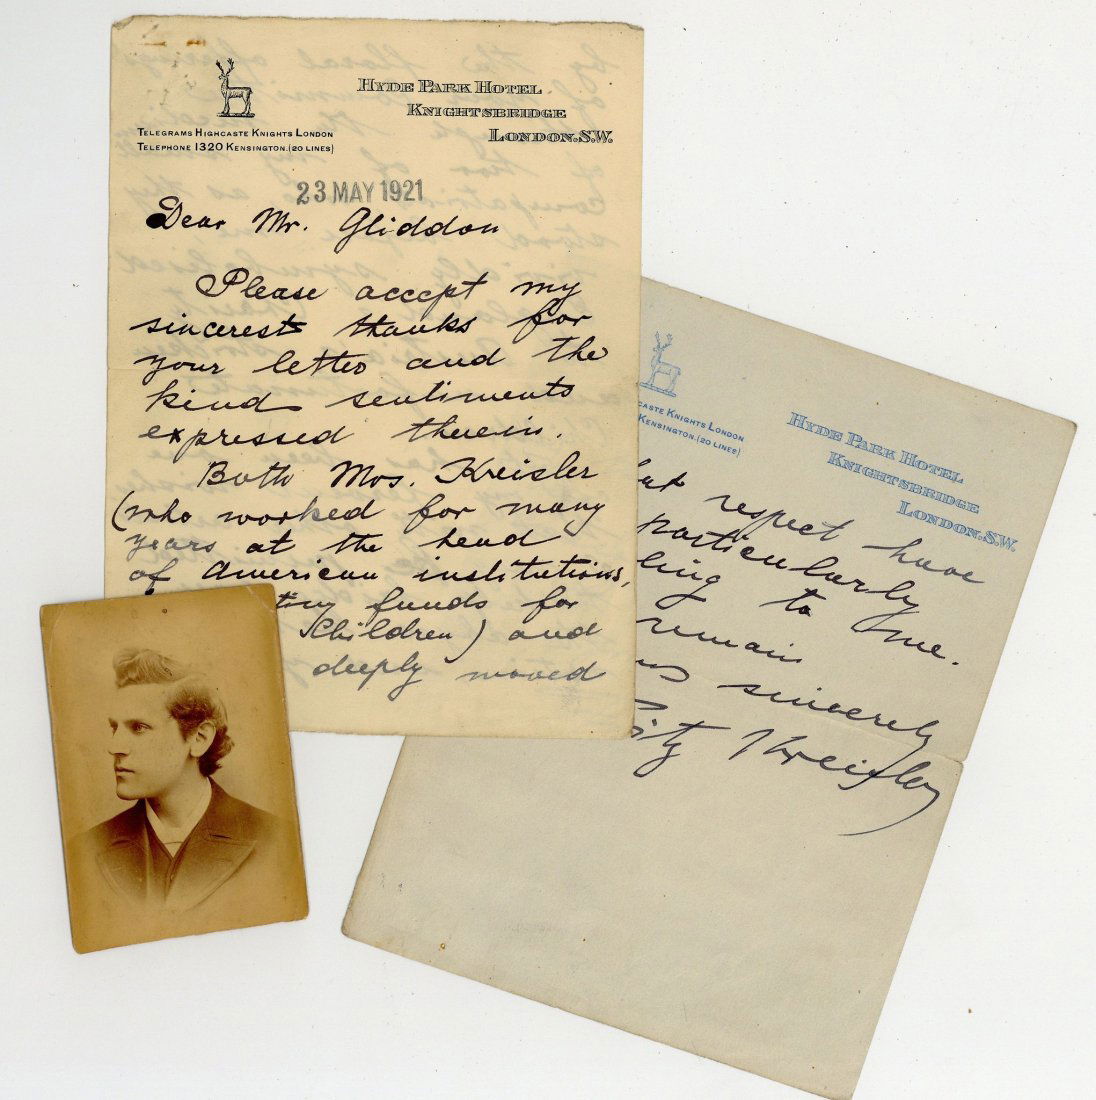 TELEGRAMS HIGHCASTE KNIGHTS LONDON
TELEPHONE 1320 KENSINGTON.(20 LINES)
HYDE PARK HOTEL
KNIGHTSBRIDGE
LONDON.S.W.
23 MAY 1921
Dear Mr. Gliddon
Please accept my
sincerest thanks for
your letter and the
kind sentiments
expressed therein.
Both Mrs. Kreisler
(who worked for many
years at the head
of American institutions,
funds for
Children) and
deeply moved
CASTE KNIGHTS LONDON
KENSINGTON.(20 LINES)
HYDE PARK HOTEL
KNIGHTSBRIDGE
LONDON.S.W.
respect have
particularly
ling to me.
remain
sincerely
Kreisler